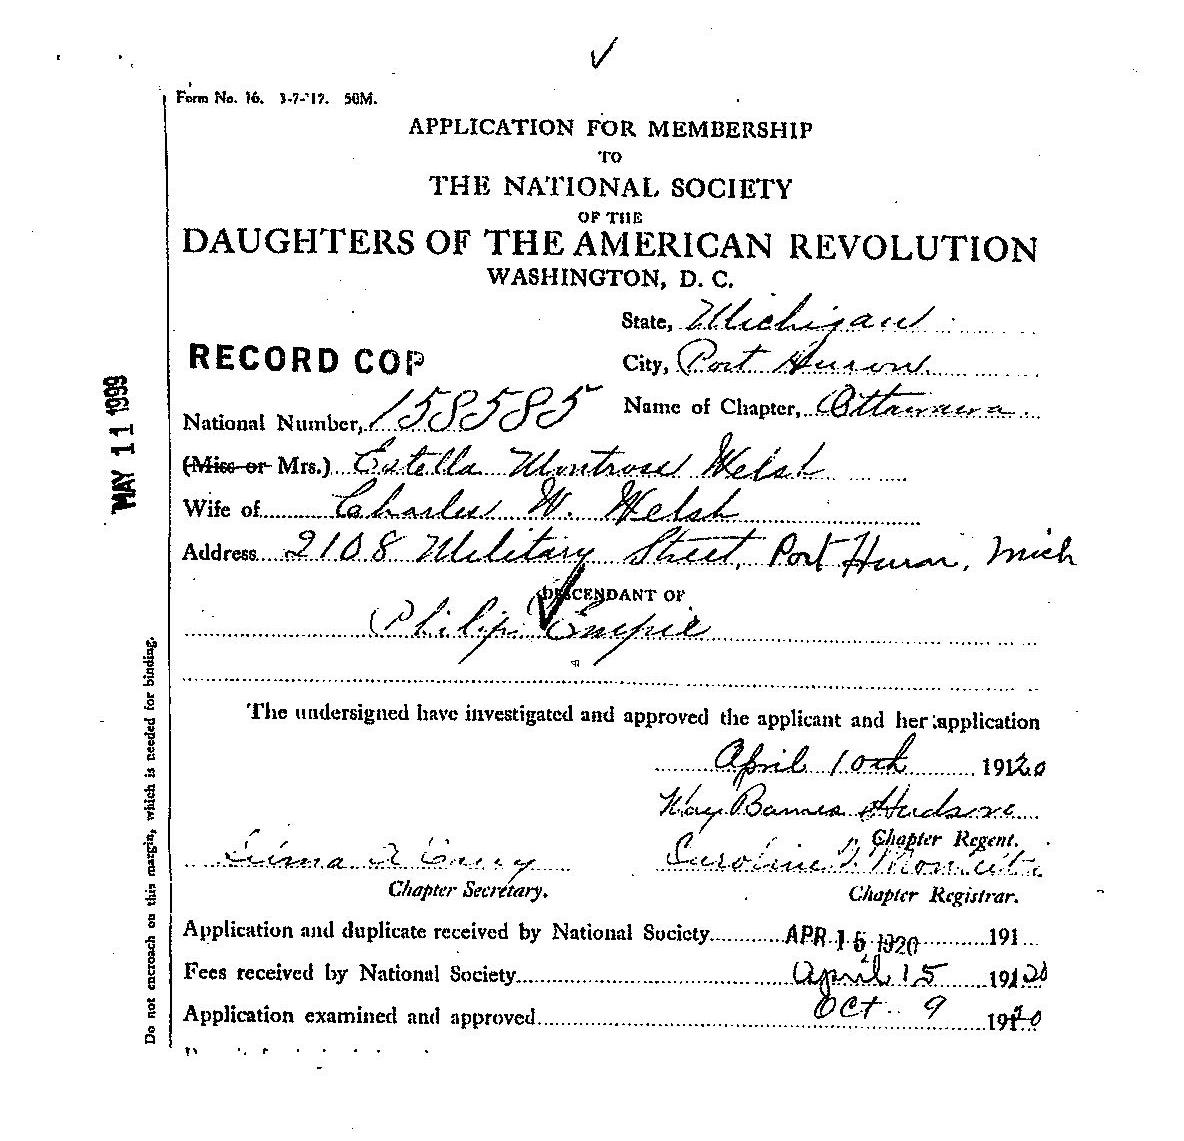 Form No. 16. 3-7-'17. 50M.
APPLICATION FOR MEMBERSHIP
TO
THE NATIONAL SOCIETY
OF THE
DAUGHTERS OF THE AMERICAN REVOLUTION
WASHINGTON, D. C.
State, Michigan
RECORD COP
City, Port Huron
Name of Chapter, Ottawawa
National Number, 158585
(Miss or Mrs.) Estella Montrose Welsh
Wife of Charles W. Welsh
Address 2108 Military Street, Port Huron, Mich
DESCENDANT OF
Philip Empie
The undersigned have investigated and approved the applicant and her application
April 10th 1920
Kay Barnes Hudson
Chapter Regent.
Caroline
Chapter Secretary.
Chapter Registrar.
Application and duplicate received by National Society APR 15 1920 191
Fees received by National Society April 15 1920
Application examined and approved Oct 9 1920
MAY 11 1999
Do not encroach on this margin, which is needed for binding.